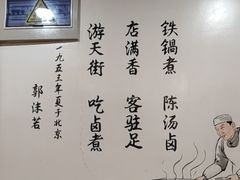 铁锅煮 陈汤卤
店满香 客驻足
游天街 吃卤煮
一九五三年夏于北京
郭沫若